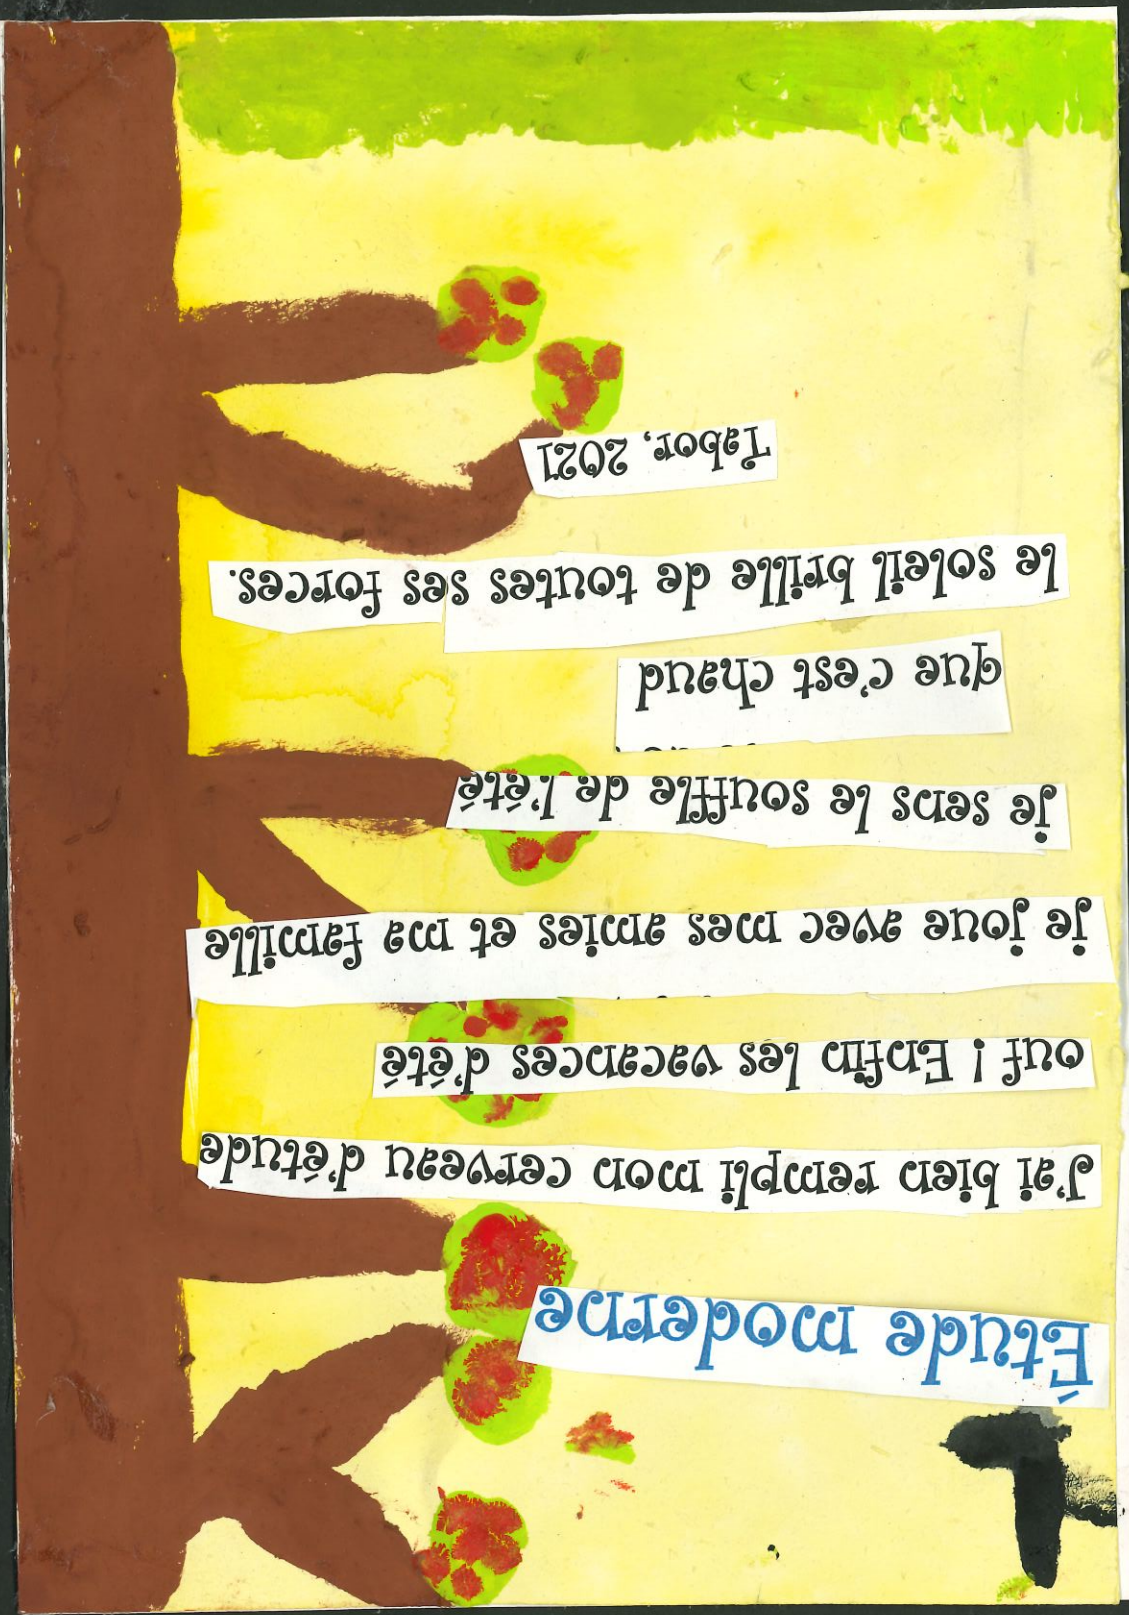 Étude moderne
J'ai bien rempli mon cerveau d'étude
ouf ! Enfin les vacances d'été
je joue avec mes amies et ma famille
je sens le souffle de l'été
que c'est chaud
le soleil brille de toutes ses forces.
Tabor, 2021